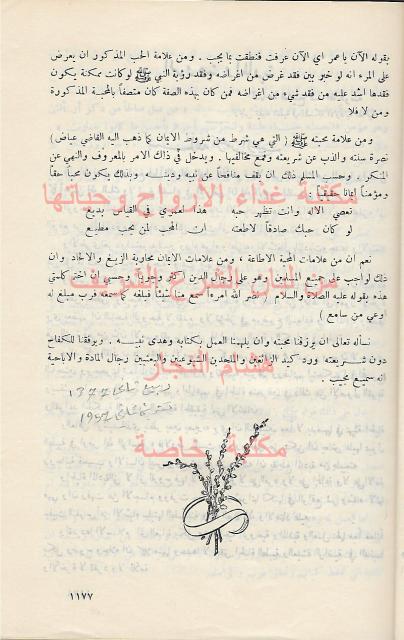 بقوله الآن ياعمر اي الآن عرفت فنطقت بما يجب . ومن علامة الحب المذكور ان يعرض
على المرء انه لو خير بين فقد غرض من اغراضه وفقد رؤية النبي ﷺ لو كانت ممكنة يكون
فقدها اشد عليه من فقد شيء من اغراضه فمن كان بهذه الصفة كان متصفاً بالمحبة المذكورة
ومن لا فلا
ومن علامة محبته ﷺ ( التي هي شرط من شروط الايمان كما ذهب اليه القاضي عياض )
نصرة سنته والذب عن شريعته وقمع مخالفيها . ويدخل في ذلك الامر بالمعروف والنهي عن
المنكر . وحسب المسلم ذلك ان يقف منافحاً عن نبيه ودينه وبذلك يكون محباً حقاً
ومؤمناً ايماناً حقيقياً :
مكتبة غذاء الأرواح وحياتها
تعصي الاله وانت تظهر حبه هذا لعمري في القياس بديع
لو كان حبك صادقاً لاطعته ان المحب لمن يحب مطيع
نعم ان من علامات المحبة الاطاعة ، ومن علامات الايمان محاربة الزيغ والالحاد وان
ذلك لواجب على جميع المسلمين وهو على رجال الدين اكثر وجوباً وحسبي ان اختم كلمتي
هذه بقوله عليه الصلاة والسلام نضر الله امرءاً سمع منا شيئاً فبلغه كما سمعه فرب مبلغ له
اوعى من سامع )
نسأله تعالى ان يرزقنا محبته وان يلهمنا العمل بكتابه وهدى نبيه . ويوفقنا للكفاح
دون شريعته ورد كيد الزائغين والملحدين الشيوعيين والبعثيين رجال المادة والاباحية
هشام النجار
انه سميع مجيب .
١٣٧٧
مكتبة خاصة
١١٧٧